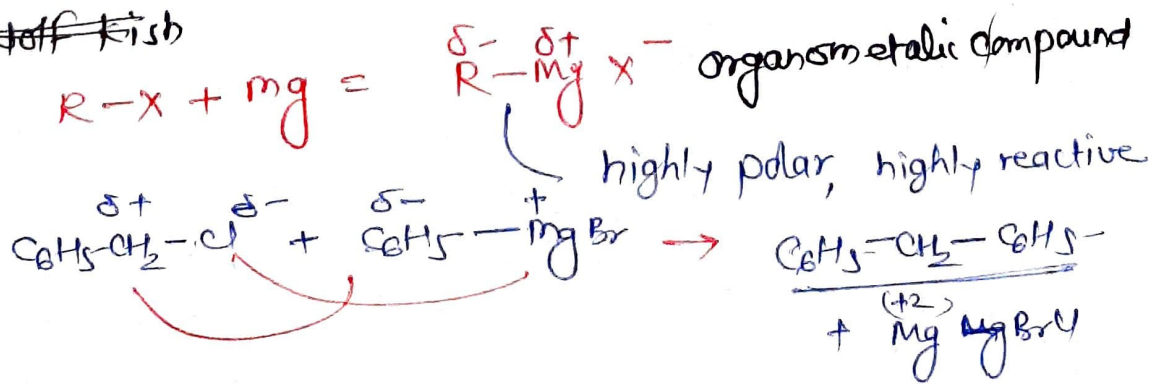 R-X + mg = R-Mg X⁻ organometalic compound
δ- δ+
highly polar, highly reactive
δ+ δ- δ- +
C6H5-CH2-Cl + C6H5-Mg Br → C6H5-CH2-C6H5-
(+2)
+ Mg BrCl